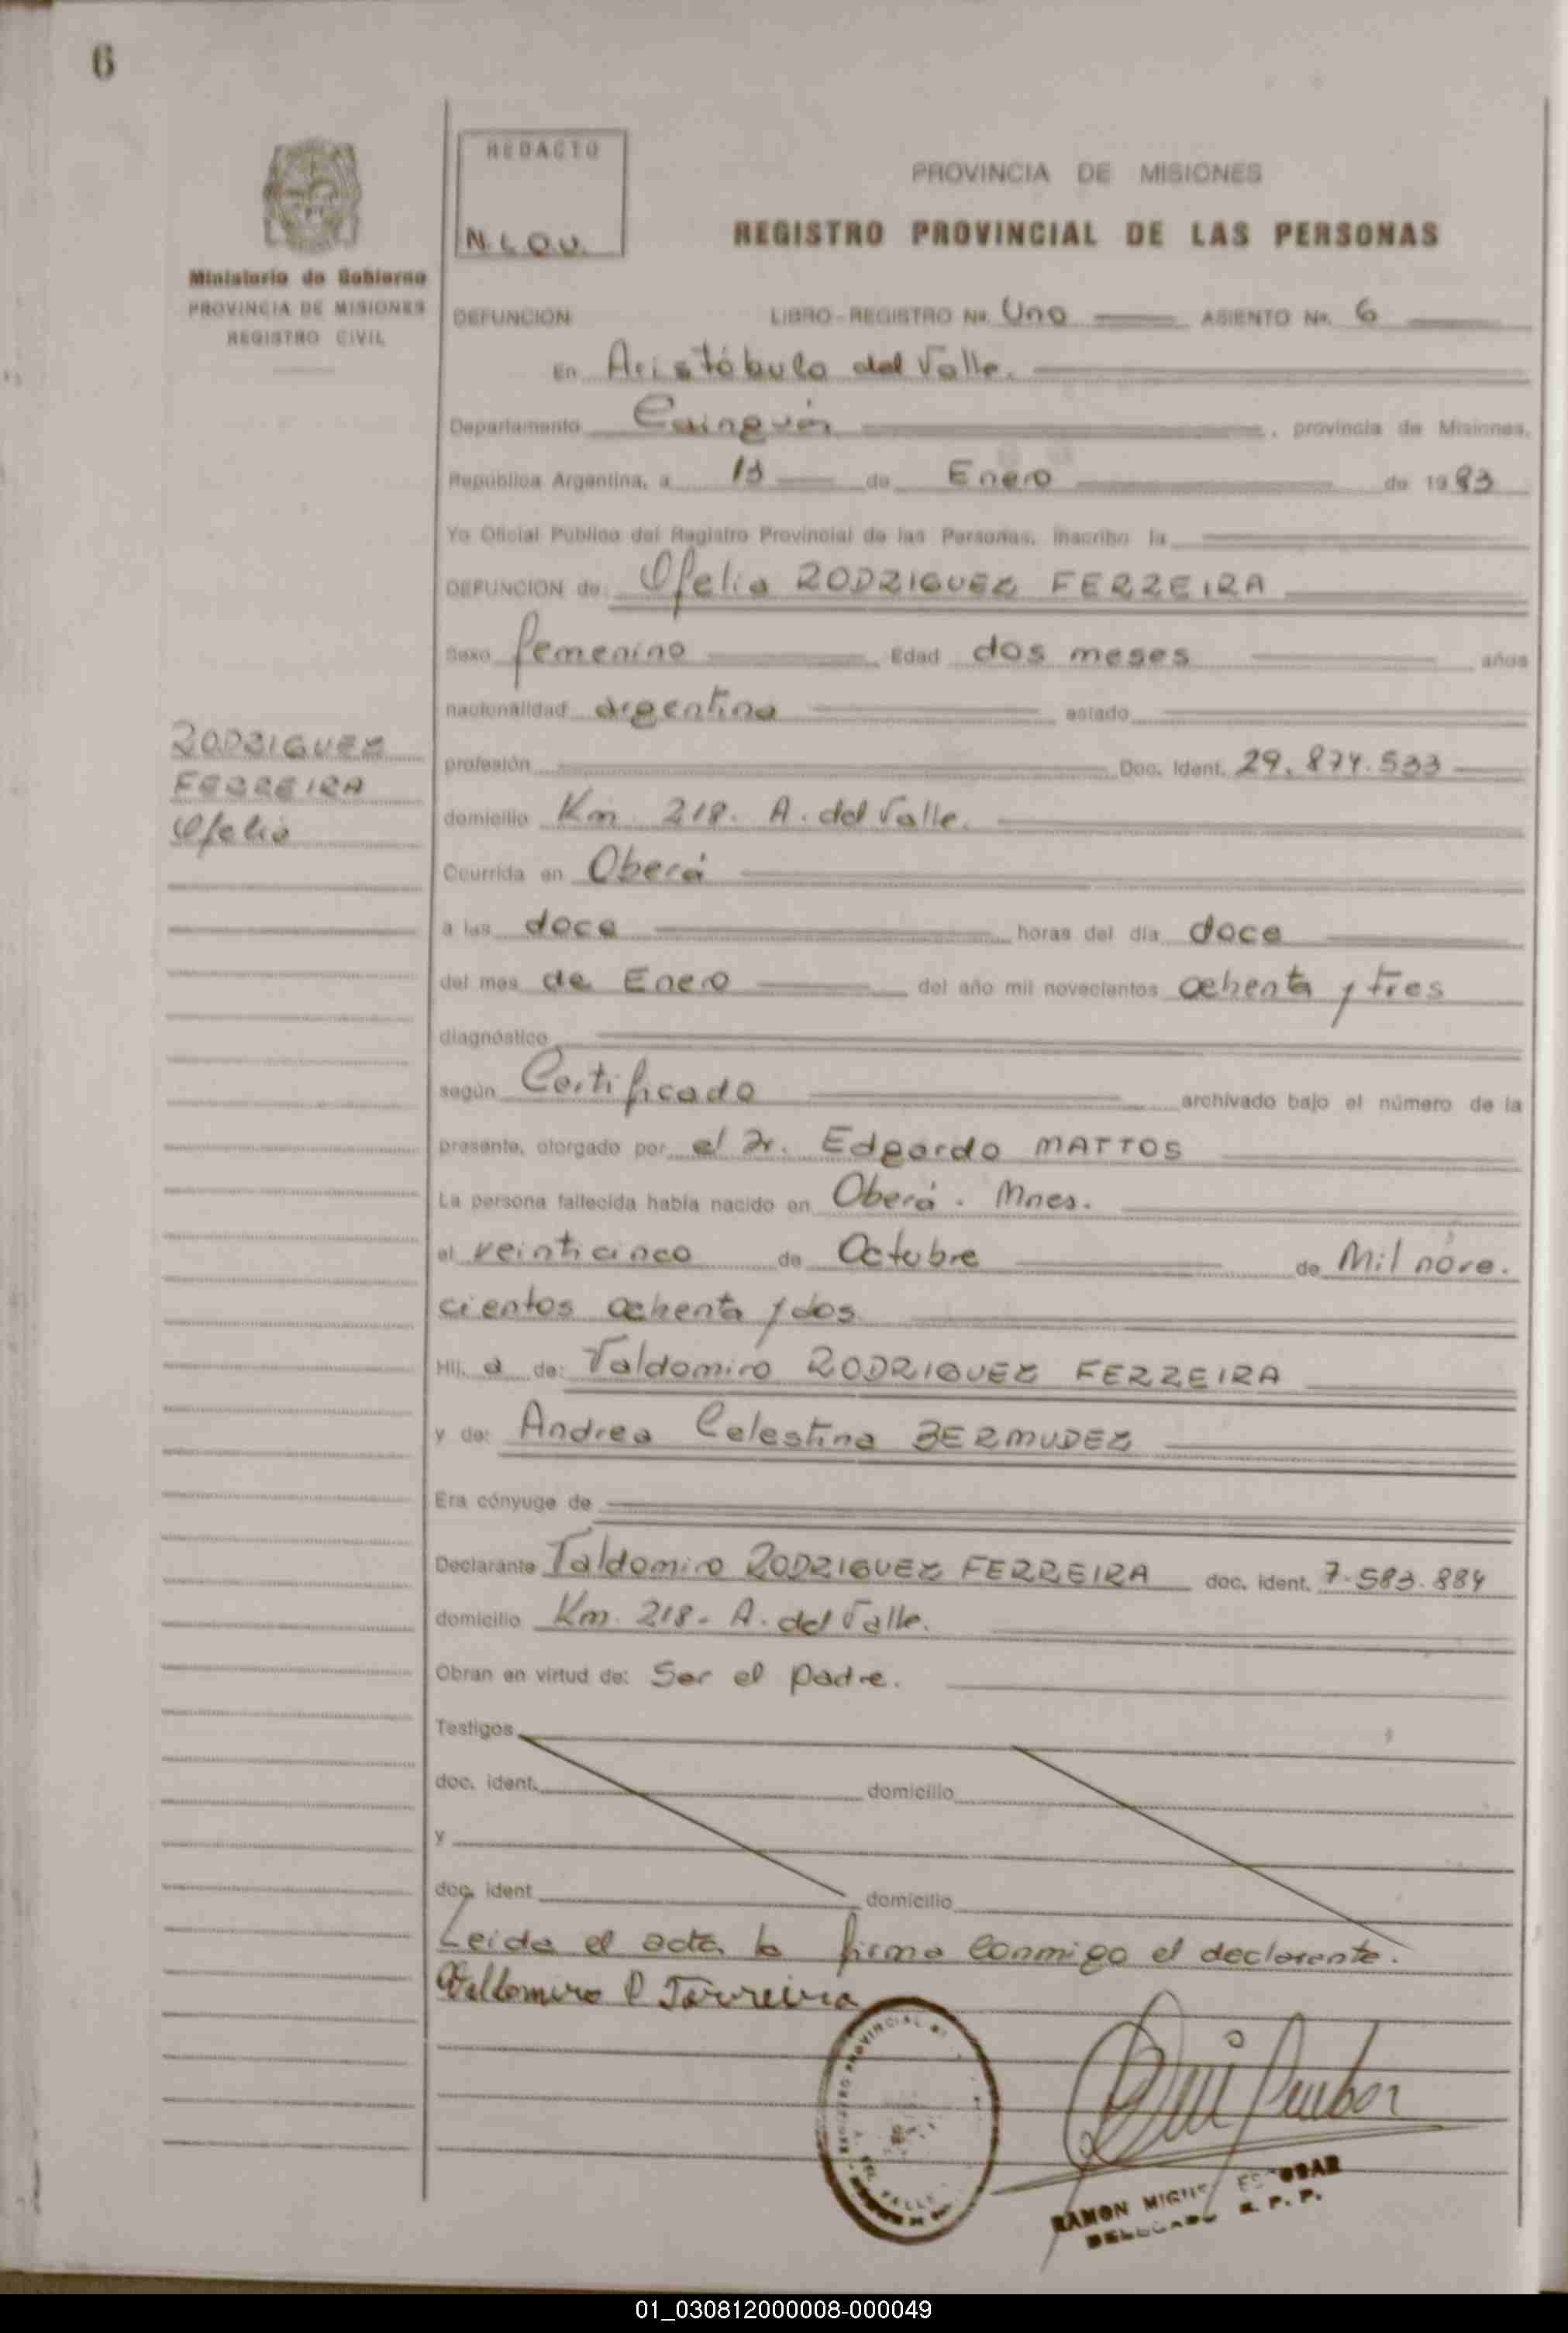 6
REDACTO
N.L.O.V.
PROVINCIA DE MISIONES
REGISTRO PROVINCIAL DE LAS PERSONAS
Ministerio de Gobierno
PROVINCIA DE MISIONES
REGISTRO CIVIL
DEFUNCION LIBRO-REGISTRO Nº. Uno ASIENTO Nº. 6
En Aristóbulo del Valle.
Departamento Cainguás, provincia de Misiones,
República Argentina, a 13 de Enero de 1983
Yo Oficial Público del Registro Provincial de las Personas, inscribo la
DEFUNCION de: Ofelia RODRIGUEZ FERREIRA
Sexo femenino Edad dos meses años
nacionalidad argentina estado
RODRIGUEZ
FERREIRA
Ofelia
profesión Doc. Ident. 29.874.533
domicilio Km. 218. A. del Valle.
Ocurrida en Oberá
a las doce horas del día doce
del mes de Enero del año mil novecientos ochenta y tres
diagnóstico
según Certificado archivado bajo el número de la
presente, otorgado por el Dr. Edgardo MATTOS
La persona fallecida había nacido en Oberá. Mnes.
el veinticinco de Octubre de Mil nove.
cientos ochenta y dos
Hij a de: Valdomiro RODRIGUEZ FERREIRA
y de: Andrea Celestina BERMUDEZ
Era cónyuge de
Declarante Valdomiro RODRIGUEZ FERREIRA doc. ident. 7.583.884
domicilio Km. 218. A. del Valle.
Obran en virtud de: Ser el padre.
Testigos
doc. ident. domicilio
y
doc. ident domicilio
Leida el acta, la firma conmigo el declarante.
Valdomiro R Ferreira
RAMON MIGUEL ESCOBAR
DELEGADO R. P. P.
01_030812000008-000049